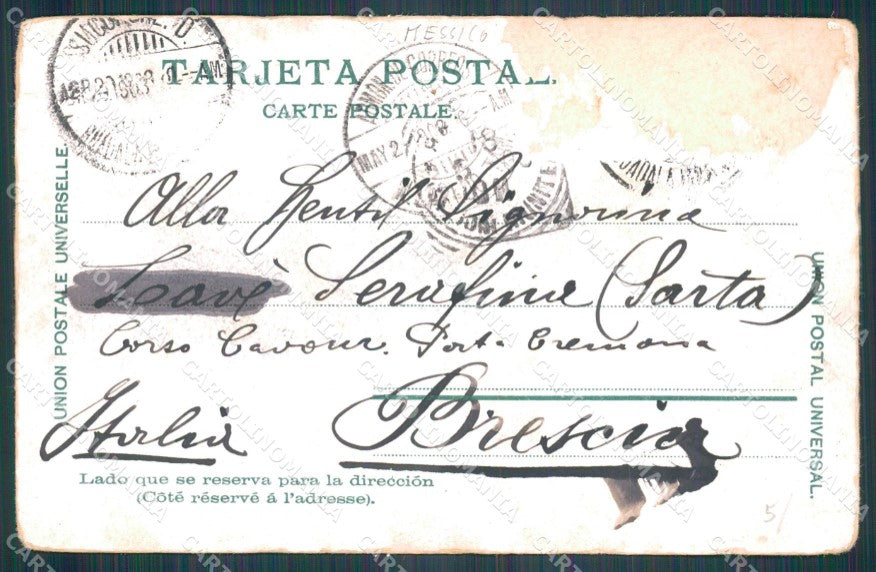 MESSICO
TARJETA POSTAL.
CARTE POSTALE.
UNION POSTALE UNIVERSELLE.
UNION POSTAL UNIVERSAL.
Alla Gentil Signorina
Serafina (Sarta)
Corso Cavour. Porta Cremona
Brescia
Italia
Lado que se reserva para la dirección
(Côté réservé á l'adresse).
5/
CARTOLINOMANIA